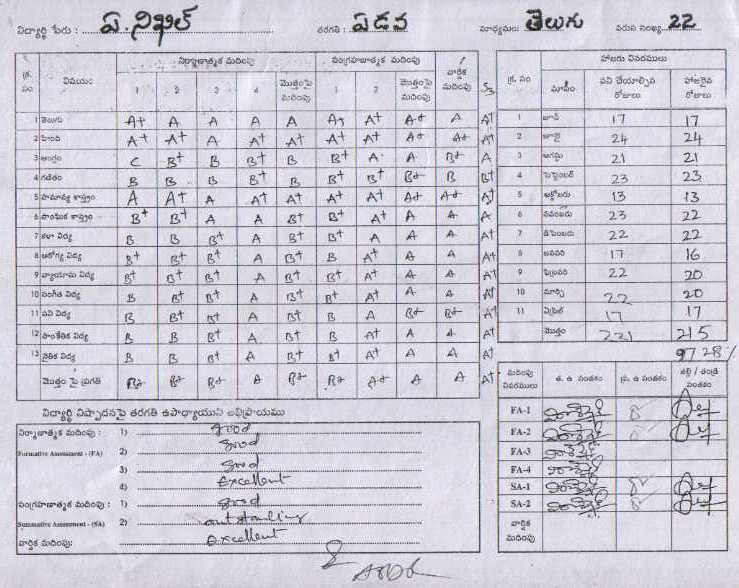 విద్యార్థి పేరు : ఏ. నిఖిల్ తరగతి : ఏడవ మాధ్యమం: తెలుగు వరుస సంఖ్య 22
క్ర. సం విషయం నిర్మాణాత్మక మదింపు సంగ్రహణాత్మక మదింపు వార్షిక మదింపు S3
1 2 3 4 మొత్తంపై మదింపు 1 2 మొత్తంపై మదింపు
1 తెలుగు A+ A A A A A+ A+ A+ A A+
2 హింది A+ A+ A A+ A+ A+ A+ A+ A+ A+
3 ఆంగ్లం C B+ B B+ B B+ A A B+ A
4 గణితం B B B B+ B B+ B+ B+ B B+
5 సామాన్య శాస్త్రం A A+ A A+ A+ A+ A+ A+ A+ A+
6 సాంఘిక శాస్త్రం B+ B+ A A B+ B+ A+ A A A
7 కళా విద్య B B B+ A B+ B+ A A A A+
8 ఆరోగ్య విద్య B+ B+ B+ A B+ B A+ A A A+
9 వ్యాయామ విద్య B+ B+ B+ A B+ B+ A+ A A A+
10 సంగీత విద్య B B+ B+ A B+ B+ A+ A A A+
11 పని విద్య B B+ B+ A B+ B A B+ B+ A+
12 సాంకేతిక విద్య B B B+ A B+ B A+ A A A+
13 నైతిక విద్య B B B+ A B+ B+ A+ A A A+
మొత్తం పై ప్రగతి B+ B+ B+ A B+ B+ A+ A A A+
హాజరు వివరములు
క్ర. సం మాసం పని చేయాల్సిన రోజులు హాజరైన రోజులు
1 జూన్ 17 17
2 జూలై 24 24
3 ఆగస్టు 21 21
4 సెప్టెంబర్ 23 23
5 అక్టోబరు 13 13
6 నవంబరు 23 22
7 డిసెంబరు 22 22
8 జనవరి 17 16
9 ఫిబ్రవరి 22 20
10 మార్చి 22 20
11 ఏప్రిల్ 17 17
మొత్తం 221 215
97.28%
విద్యార్థి నిష్పాదనపై తరగతి ఉపాధ్యాయుని అభిప్రాయము
నిర్మాణాత్మక మదింపు : 1) good
Formative Assessment - (FA) 2) good
3) good
4) Excellent
సంగ్రహణాత్మక మదింపు : 1) good
Summative Assessment - (SA) 2) outstanding
వార్షిక మదింపు: Excellent
మదింపు వివరములు త. ఉ సంతకం ప్ర. ఉ సంతకం తల్లి / తండ్రి సంతకం
FA-1
FA-2
FA-3
FA-4
SA-1
SA-2
వార్షిక మదింపు